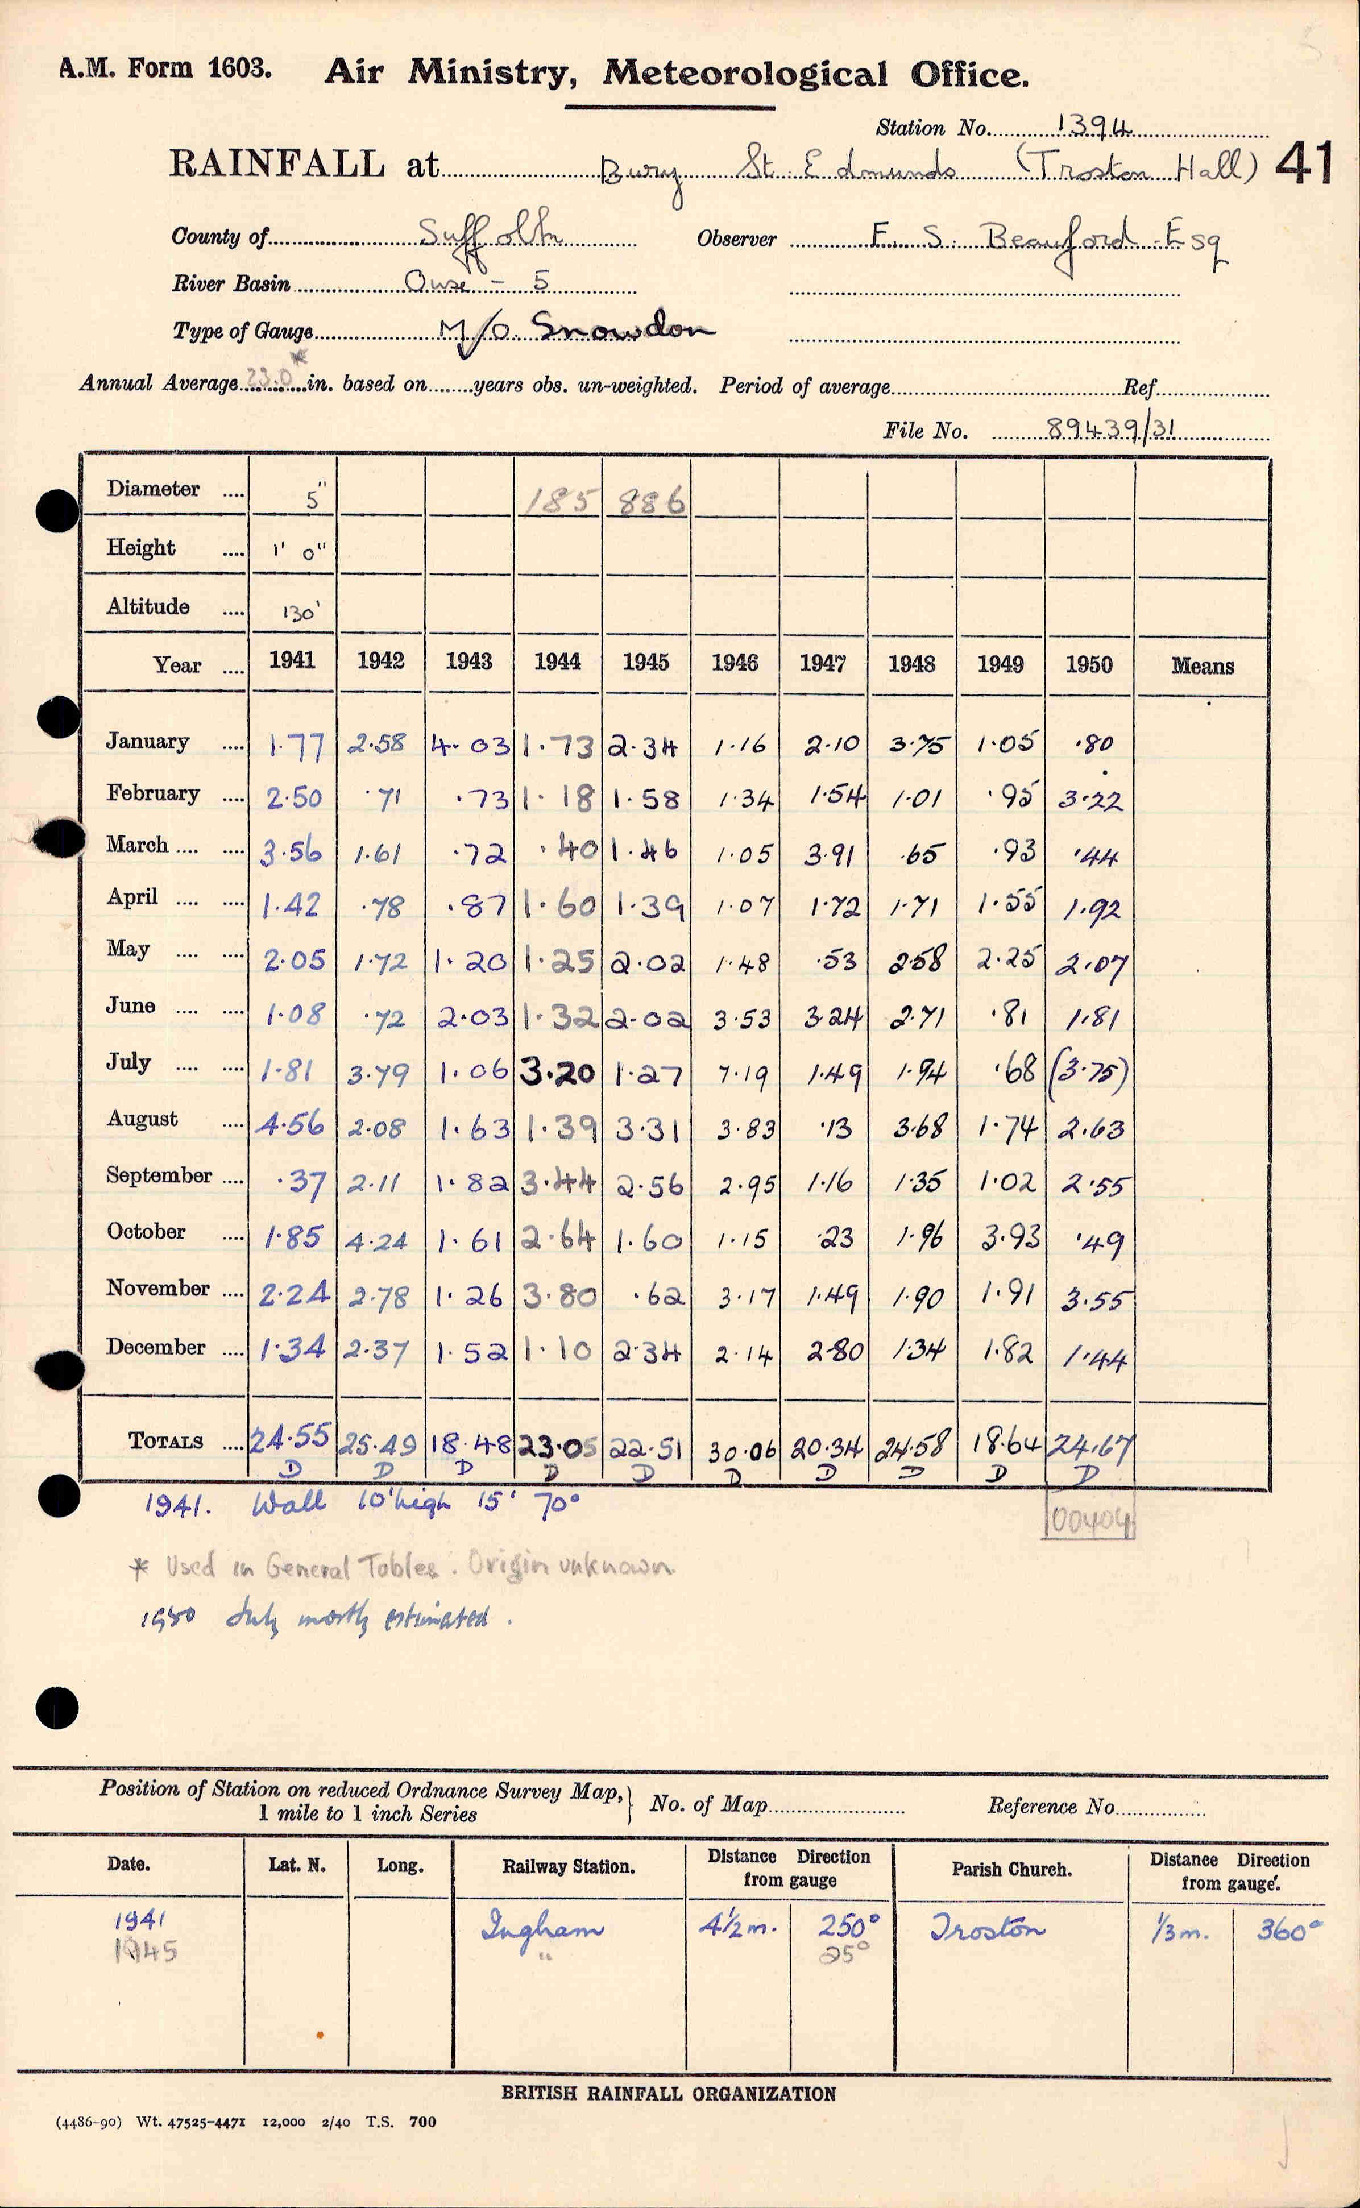 A.M. Form 1603. Air Ministry, Meteorological Office.
Station No. 1394
RAINFALL at Bury St. Edmunds (Troston Hall) 41
County of Suffolk Observer F. S. Beauford Esq
River Basin Ouse - 5
Type of Gauge M/O. Snowdon
Annual Average 23.0* in. based on years obs. un-weighted. Period of average Ref.
File No. 89439/31
Diameter .... 5" 185 886
Height .... 1' 0"
Altitude .... 130'
Year .... 1941 1942 1943 1944 1945 1946 1947 1948 1949 1950 Means
January .... 1.77 2.58 4.03 1.73 2.34 1.16 2.10 3.75 1.05 .80
February .... 2.50 .71 .73 1.18 1.58 1.34 1.54 1.01 .95 3.22
March .... .... 3.56 1.61 .72 .40 1.46 1.05 3.91 .65 .93 .44
April .... .... 1.42 .78 .87 1.60 1.39 1.07 1.72 1.71 1.55 1.92
May .... .... 2.05 1.72 1.20 1.25 2.02 1.48 .53 2.58 2.25 2.07
June .... .... 1.08 .72 2.03 1.32 2.02 3.53 3.24 2.71 .81 1.81
July .... .... 1.81 3.79 1.06 3.20 1.27 7.19 1.49 1.94 .68 (3.75)
August .... 4.56 2.08 1.63 1.39 3.31 3.83 .13 3.68 1.74 2.63
September .... .37 2.11 1.82 3.44 2.56 2.95 1.16 1.35 1.02 2.55
October .... 1.85 4.24 1.61 2.64 1.60 1.15 .23 1.96 3.93 .49
November .... 2.24 2.78 1.26 3.80 .62 3.17 1.49 1.90 1.91 3.55
December .... 1.34 2.37 1.52 1.10 2.34 2.14 2.80 1.34 1.82 1.44
TOTALS .... 24.55 25.49 18.48 23.05 22.51 30.06 20.34 24.58 18.64 24.67
D D D D D D D D D D
1941. Wall 10' high 15' 70° 00404
* Used in General Tables. Origin unknown
1950 July month estimated.
Position of Station on reduced Ordnance Survey Map, 1 mile to 1 inch Series } No. of Map Reference No.
Date. Lat. N. Long. Railway Station. Distance Direction from gauge Parish Church. Distance Direction from gauge.
1941 Ingham 4½ m. 250° Troston ⅓ m. 360°
1945 " 25°
BRITISH RAINFALL ORGANIZATION
(4486-90) Wt. 47525-4471 12,000 2/40 T.S. 700